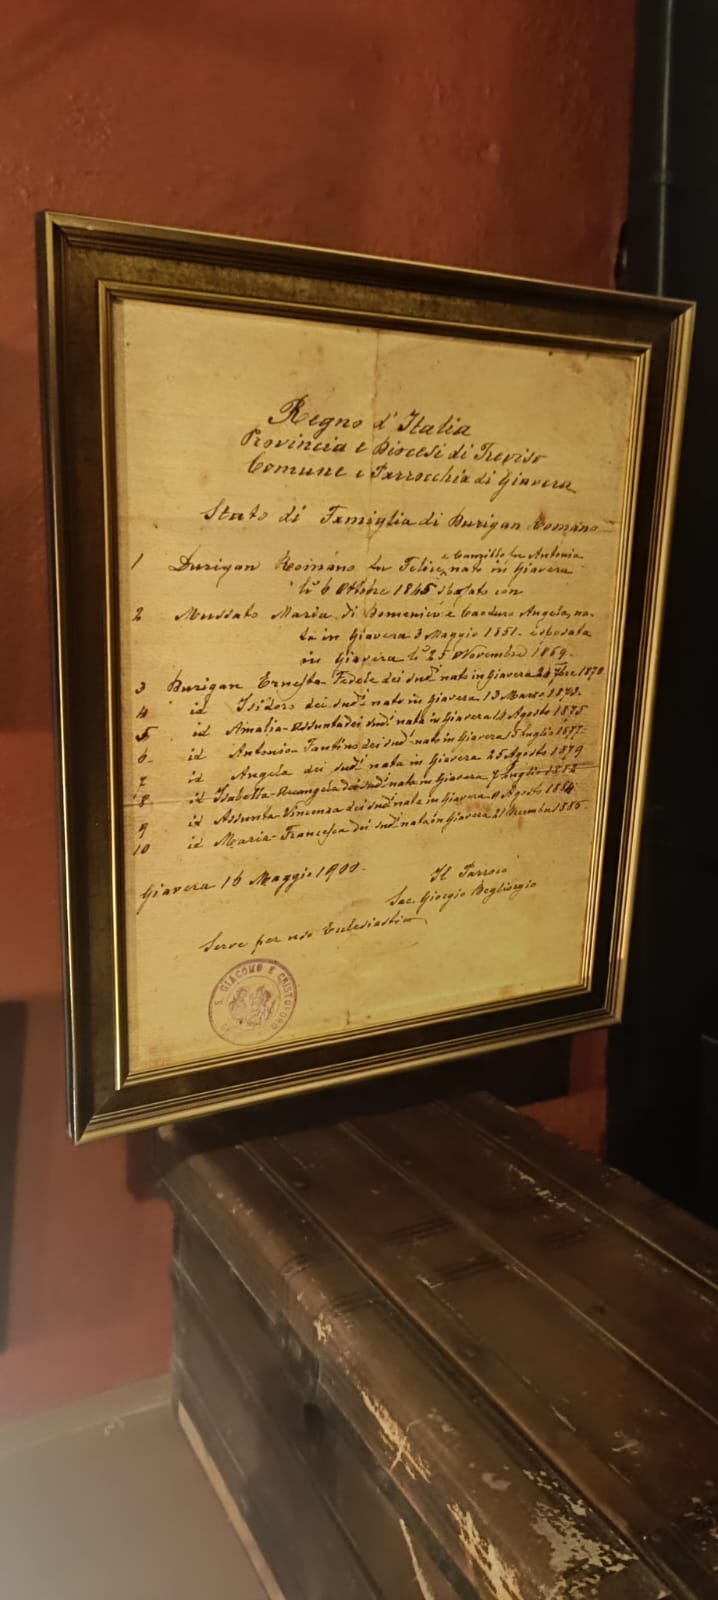 Regno d'Italia
Provincia e Diocesi di Treviso
Comune e Parrocchia di Giavera
Stato di Famiglia di Durigan Romano
1 Durigan Romano fu Felice, e fu Antonia nato in Giavera
li 6 Ottobre 1845 sposato con
2 Mussato Maria di Domenico e Caoduro Angela, na-
ta in Giavera 3 Maggio 1851. sposata
in Giavera li 25 Novembre 1869.
3 Durigan Ernesta-Fedele dei sudi nata in Giavera 1870
4 id Isidoro dei sudi nato in Giavera 13 Marzo 1873.
5 id Amalia-Assunta dei sudi nata in Giavera Agosto 1875
6 id Antonio-Fantino dei sudi nato in Giavera Luglio 1877.
7 id Angela dei sudi nata in Giavera 25 Agosto 1879
8 id Isabella-Arcangela dei sudi nata in Giavera 7 Luglio 1882
9 id Assunta-Vincenza dei sudi nata in Giavera Agosto 1884.
10 id Maria-Francesca dei sudi nata in Giavera 21 Dicembre 1886.
Giavera 16 Maggio 1900.
Il Parroco
Sac. Giorgio
Serve per uso Ecclesiastico
S. GIACOMO E CRISTOFORO